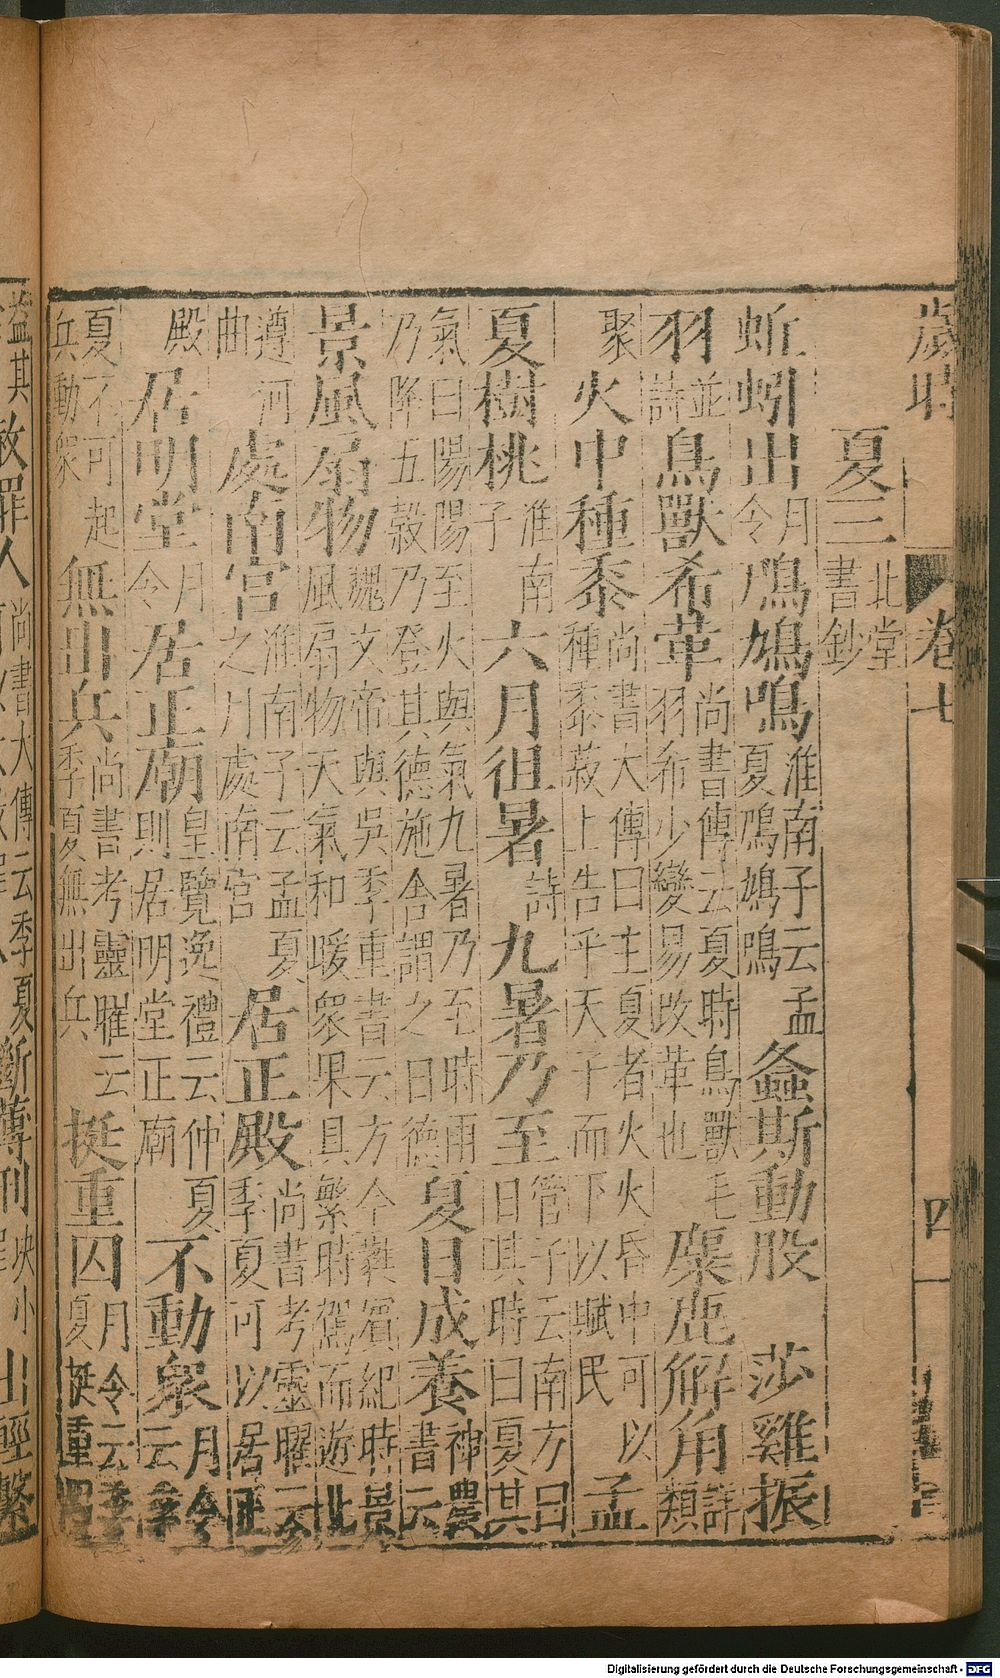 歲時 卷七 四
夏三 北堂書鈔
蚯蚓出 月令 鳲鳩鳴 淮南子云孟夏鳲鳩鳴 螽斯動股 莎雞振
羽 並詩 鳥獸希革 尚書傳云夏時鳥獸毛羽希少變易改革也 麋鹿解角 詳類
聚 火中種黍 尚書大傳曰主夏者火火昏中可以種黍菽上告乎天子而下以賦民 孟
夏樹桃 淮南子 六月徂暑 詩 九暑乃至 管子云南方曰日其時曰夏其
氣曰陽陽至火與氣九暑乃至時雨乃降五穀乃登其德施舍謂之日德 夏日成養 神農書云
景風扇物 魏文帝與吳季重書云方今蕤賓紀時景風扇物天氣和暖衆果具繁時駕而遊北
遵河曲 處南宮 淮南子云孟夏之月處南宮 居正殿 尚書考靈曜云季夏可以居正
殿 居明堂 月令 居正廟 皇覽逸禮云仲夏則居明堂正廟 夏不動衆 月令云季
夏不可起兵動衆 無出兵 尚書考靈曜云季夏無出兵 挺重囚 月令云季夏挺重囚
益其 赦罪人 尚書大傳云季夏 斷薄刑 決小 出輕繫
Digitalisierung gefördert durch die Deutsche Forschungsgemeinschaft - DFG